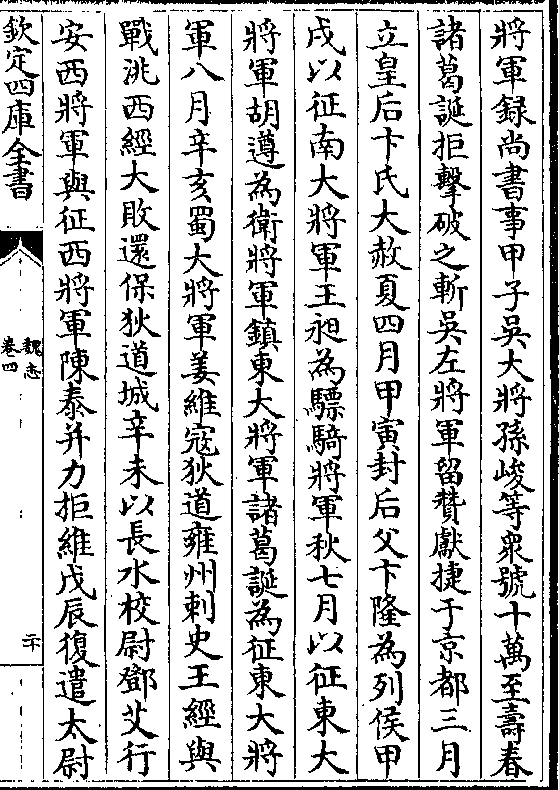 將軍録尚書事甲子吳大將孫峻等衆號十萬至壽春
諸葛誕拒擊破之斬吳左將軍留贊獻捷于京都三月
立皇后卞氏大赦夏四月甲寅封后父卞隆為列侯甲
戌以征南大將軍王昶為驃騎將軍秋七月以征東大
將軍胡遵為衛將軍鎮東大將軍諸葛誕為征東大將
軍八月辛亥蜀大將軍姜維寇狄道雍州刺史王經與
戰洮西經大敗還保狄道城辛未以長水校尉鄧艾行
安西將軍與征西將軍陳泰并力拒維戊辰復遣太尉
欽定四庫全書
魏志
卷四
二十